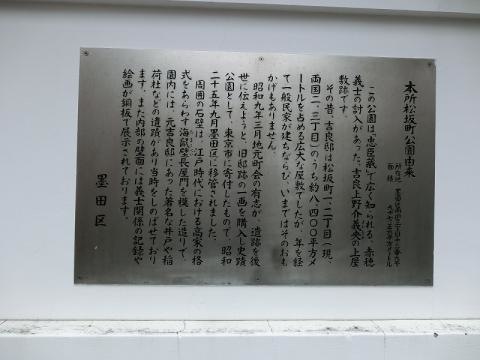 本所松坂町公園由来
所在地 墨田区両国三丁目十三番九号
面積 九十七・五六平方メートル
この公園は「忠臣蔵」で広く知られる、赤穂
義士の討入があった、吉良上野介義央の上屋
敷跡です。
その昔、吉良邸は松坂町一、二丁目（現、
両国二、三丁目）のうち約八、四〇〇平方メ
ートルを占める広大な屋敷でしたが、年を経
て一般民家が建ちならび、いまではそのおも
かげもありません。
昭和九年三月地元町会の有志が、遺跡を後
世に伝えようと、旧邸跡の一画を購入し史蹟
公園として、東京市に寄付したもので、昭和
二十五年九月墨田区に移管されました。
周囲の石壁は、江戸時代における高家の格
式をあらわす海鼠壁長屋門を模した造りで、
園内には、元吉良邸にあった著名な井戸や稲
荷社などの遺跡があり当時をしのばせており
ます。また内部の壁面には義士関係の記録や
絵画が銅板で展示されております。
墨田区